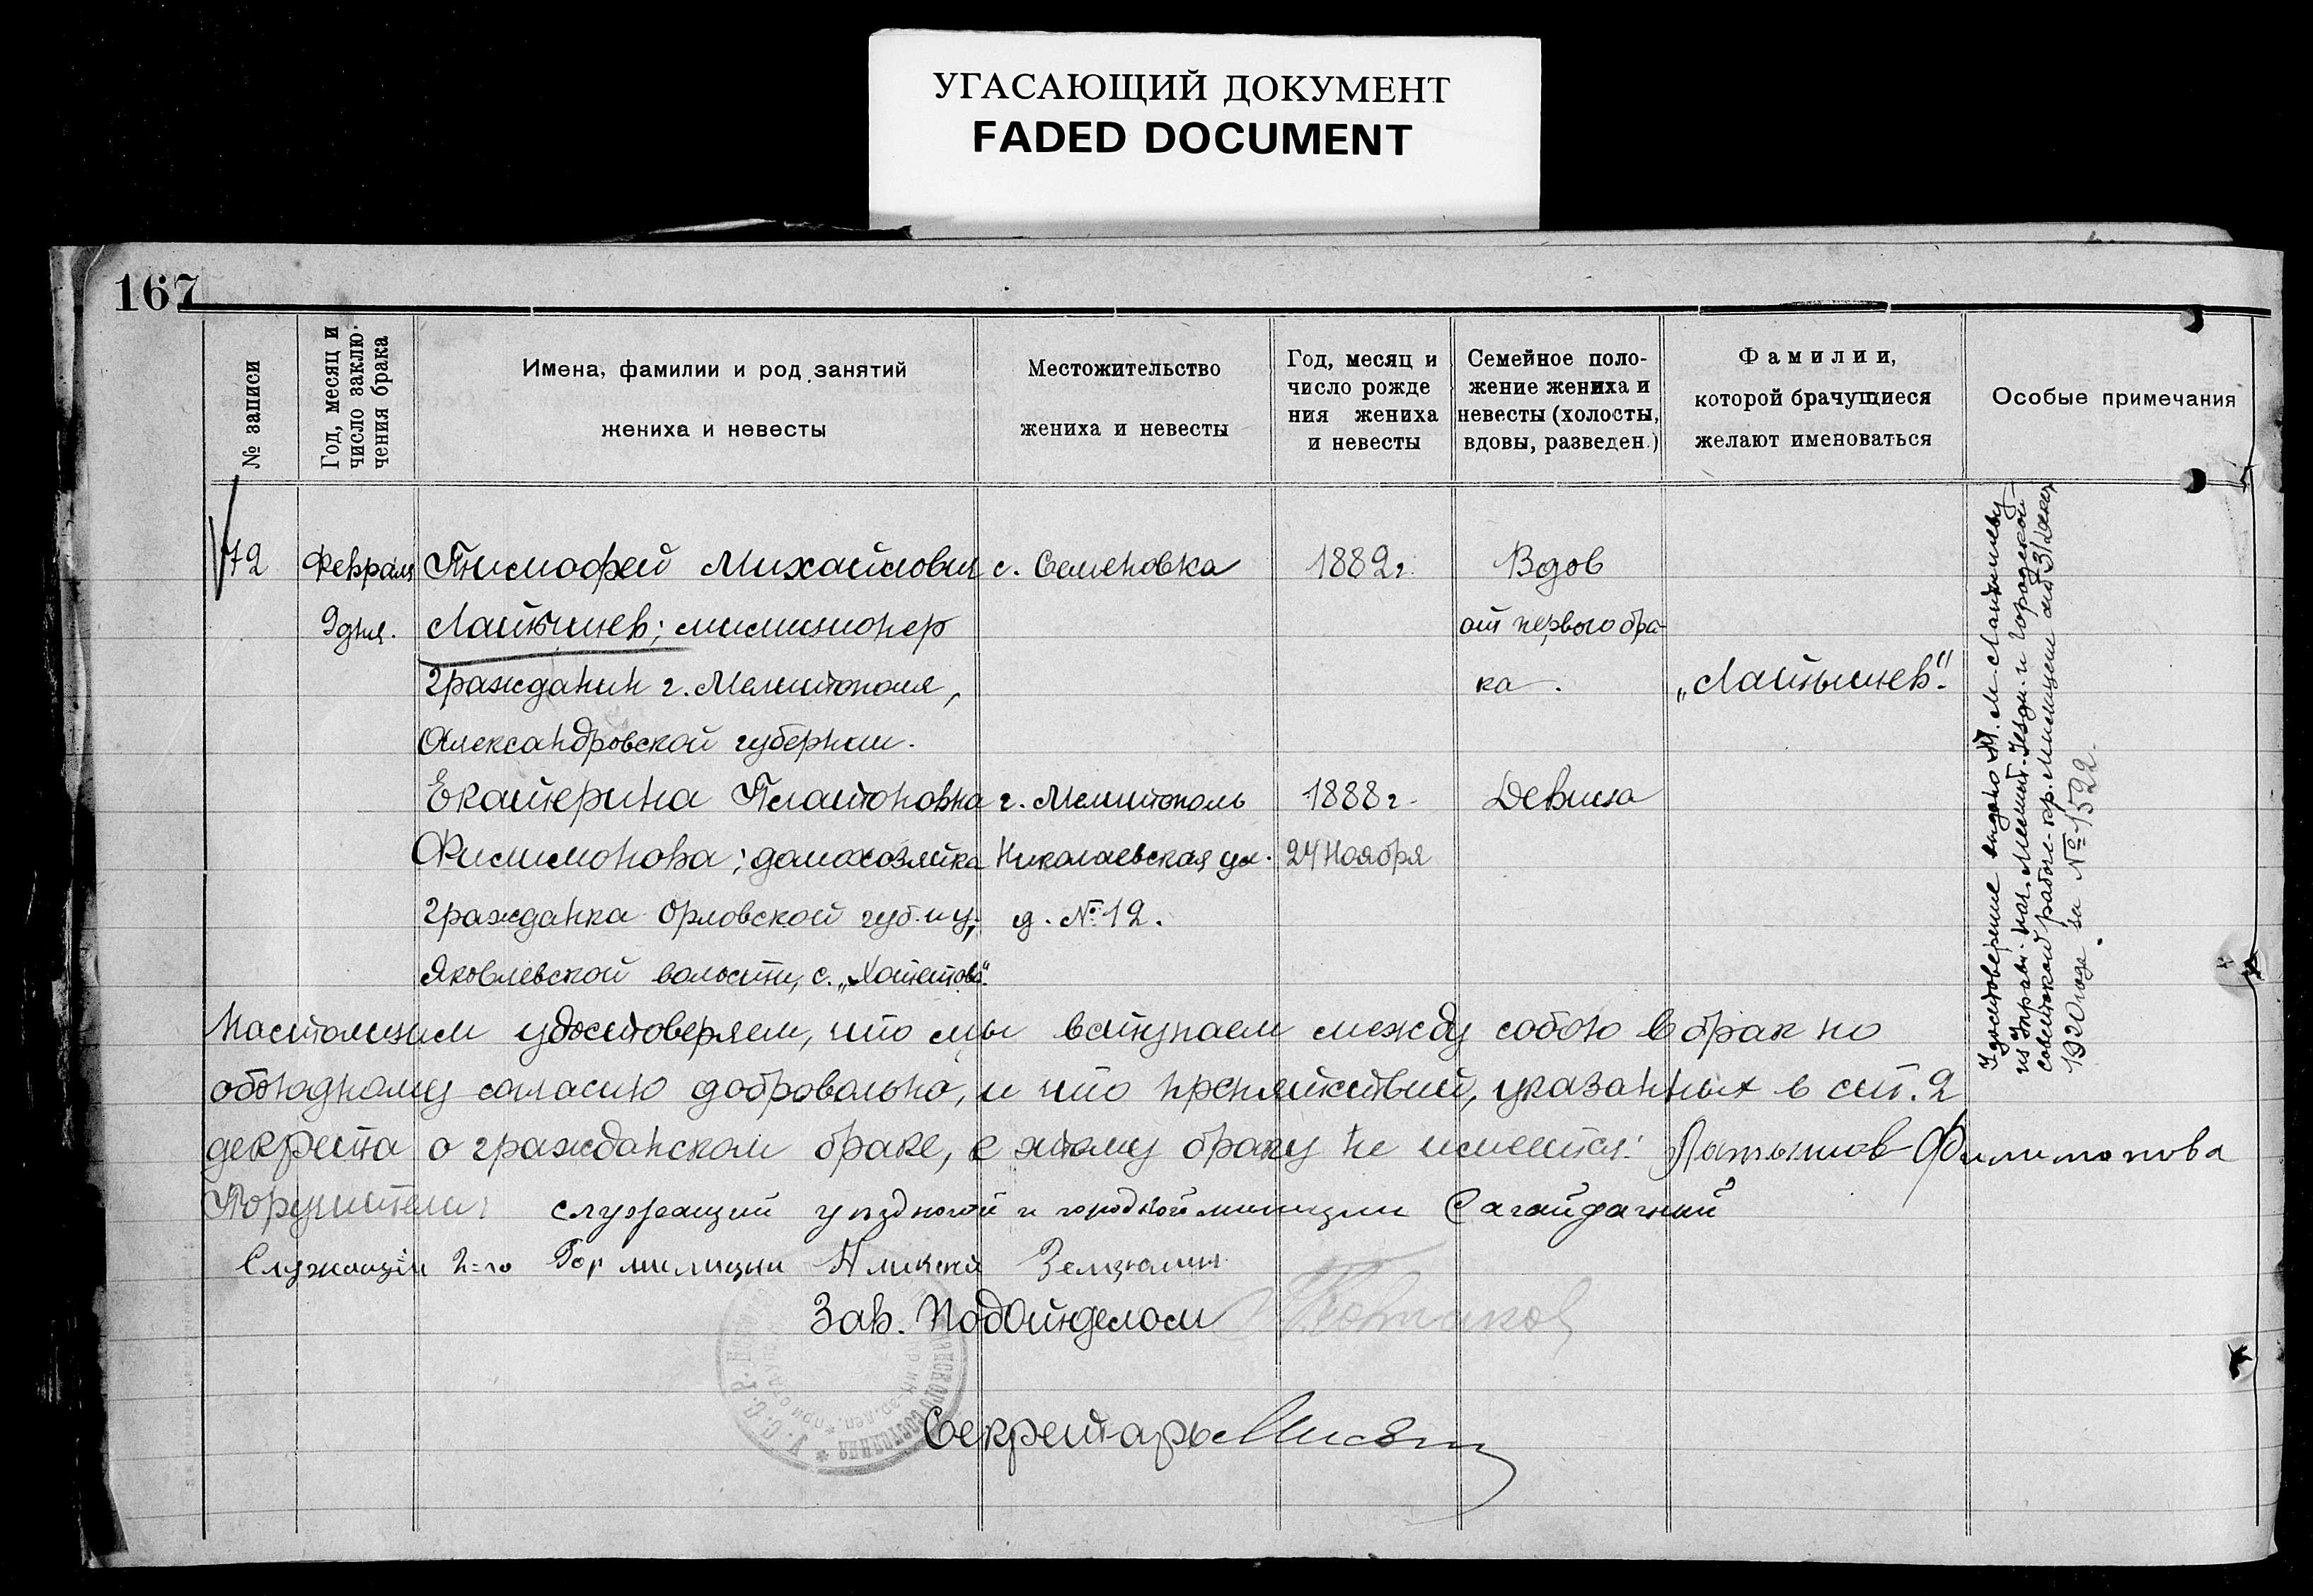 УГАСАЮЩИЙ ДОКУМЕНТ
FADED DOCUMENT
167
№ записи
Год, месяц и
число заклю-
чения брака
Имена, фамилии и род занятий
жениха и невесты
Местожительство
жениха и невесты
Год, месяц и
число рожде
ния жениха
и невесты
Семейное поло-
жение жениха и
невесты (холосты,
вдовы, разведен.)
Фамилии,
которой брачущиеся
желают именоваться
Особые примечания
72
Февраля
9 дня.
Тимофей Михайлович
Латышев; милиционер
гражданин г. Мелитополя,
Александровской губернии.
с. Семеновка
1882 г.
Вдов
от первого бра-
ка.
„Латышев".
Екатерина Платоновна
Филимонова; домохозяйка
гражданка Орловской губ. и у,
Яковлевской волости, с. „Хотетова".
г. Мелитополь
Николаевская ул.
д. № 12.
1888 г.
24 Ноября
Девица
Удостоверение выдано Т. М. Латышеву
из Управ. нач. Мелит. Уездн. и городской
советской рабоче-кр. Милиции от 31 Декаб.
1920 года за № 1522.
Настоящим удостоверяем, что мы вступаем между собою в брак по
обоюдному согласию добровольно, и что препятствий, указанных в ст. 2
декрета о гражданском браке, к этому браку не имеется: Латышов Филимонова
Поручители: служащий уездной и городской милиции Сагайдачный
Служащий 2-го Гор милиции Алексей
Зав. ПодОтделом
Секретарь